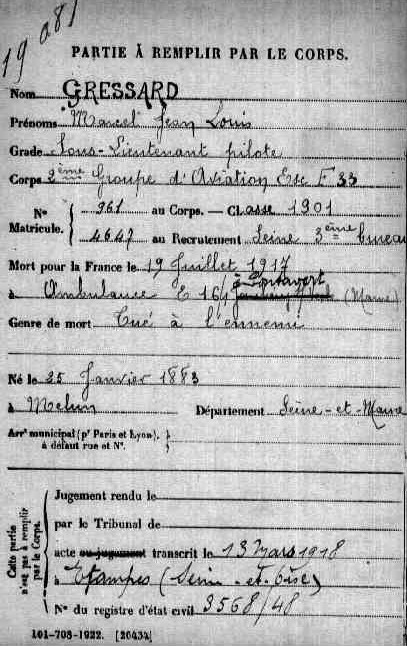 19 081
PARTIE À REMPLIR PAR LE CORPS.
Nom GRESSARD
Prénoms Marcel Jean Louis
Grade Sous-Lieutenant pilote
Corps 2ème Groupe d'Aviation Esc F 33
No Matricule. { 961 au Corps. — Classe 1901
4647 au Recrutement Seine 3ème bureau
Mort pour la France le 19 Juillet 1917
à Pontavert
à Ambulance E 16/ (Marne)
Genre de mort Tué à l'ennemi
Né le 25 Janvier 1883
à Melun Département Seine-et-Marne
Arrt municipal (pr Paris et Lyon), à défaut rue et No. }
Cette partie n'est pas à remplir par le Corps.
Jugement rendu le
par le Tribunal de
acte ou jugement transcrit le 13 Mars 1918
à Etampes (Seine-et-Oise)
No du registre d'état civil 3568/48
101-708-1922. [26434]